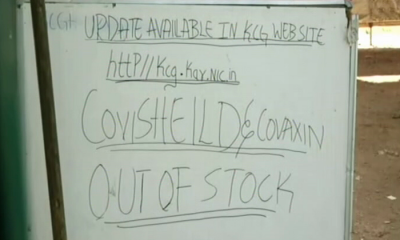 UPDATE AVAILABLE IN KCG WEBSITE
httP//Kcg.Kar.nic.in
COVISHEILD & COVAXIN
OUT OF STOCK